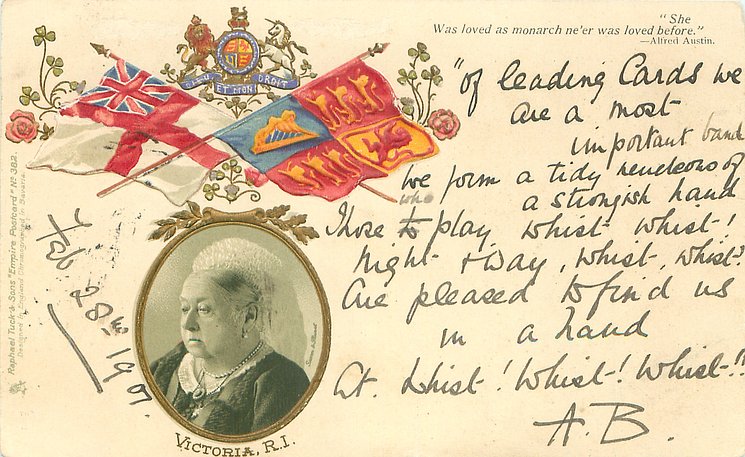 "She
Was loved as monarch ne'er was loved before."
—Alfred Austin.
DIEU ET MON DROIT
"Of leading Cards we
are a most
important band
We form a tidy neucleons of
a strongish hand
Those who to play whist whist!
Night & Day, whist, whist?
Are pleased to find us
in a hand
At. Whist! Whist! Whist!!
A.B.
Feb 28th 1901
VICTORIA, R.I.
Raphael Tuck & Sons "Empire Postcard" Nº 382.
Designed in England Chromographed in Bavaria.